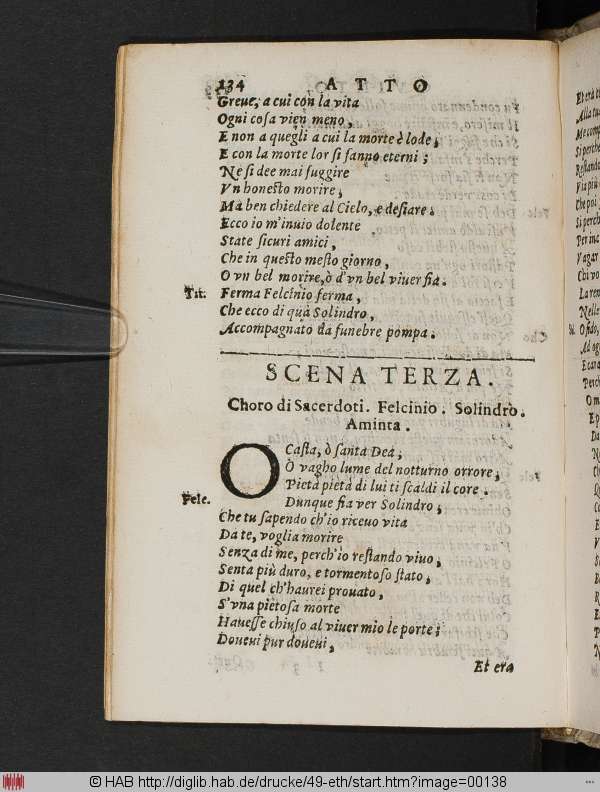 134 ATTO
Greue, a cui con la vita
Ogni coſa vien meno,
E non a quegli a cui la morte è lode;
E con la morte lor ſi fanno eterni;
Ne ſi dee mai fuggire
Vn honeſto morire;
Ma ben chiedere al Cielo, e deſiare.
Ecco io m'inuio dolente
State ſicuri amici,
Che in queſto meſto giorno,
O vn bel morire, ò d'vn bel viuer fia.
Tit. Ferma Felcinio ferma,
Che ecco di quà Solindro,
Accompagnato da funebre pompa.
SCENA TERZA.
Choro di Sacerdoti. Felcinio. Solindrò.
Aminta.
O Caſta, ò ſanta Dea,
Ò vagho lume del notturno orrore,
Pietà pietà di lui ti ſcaldi il core.
Felc. Dunque fia ver Solindro,
Che tu ſapendo ch'io riceuo vita
Da te, voglia morire
Senza di me, perch'io reſtando viuo,
Senta più duro, e tormentoſo ſtato,
Di quel ch'haurei prouato,
S'vna pietoſa morte
Haueſſe chiuſo al viuer mio le porte;
Doueui pur doueui,
Et era
© HAB http://diglib.hab.de/drucke/49-eth/start.htm?image=00138